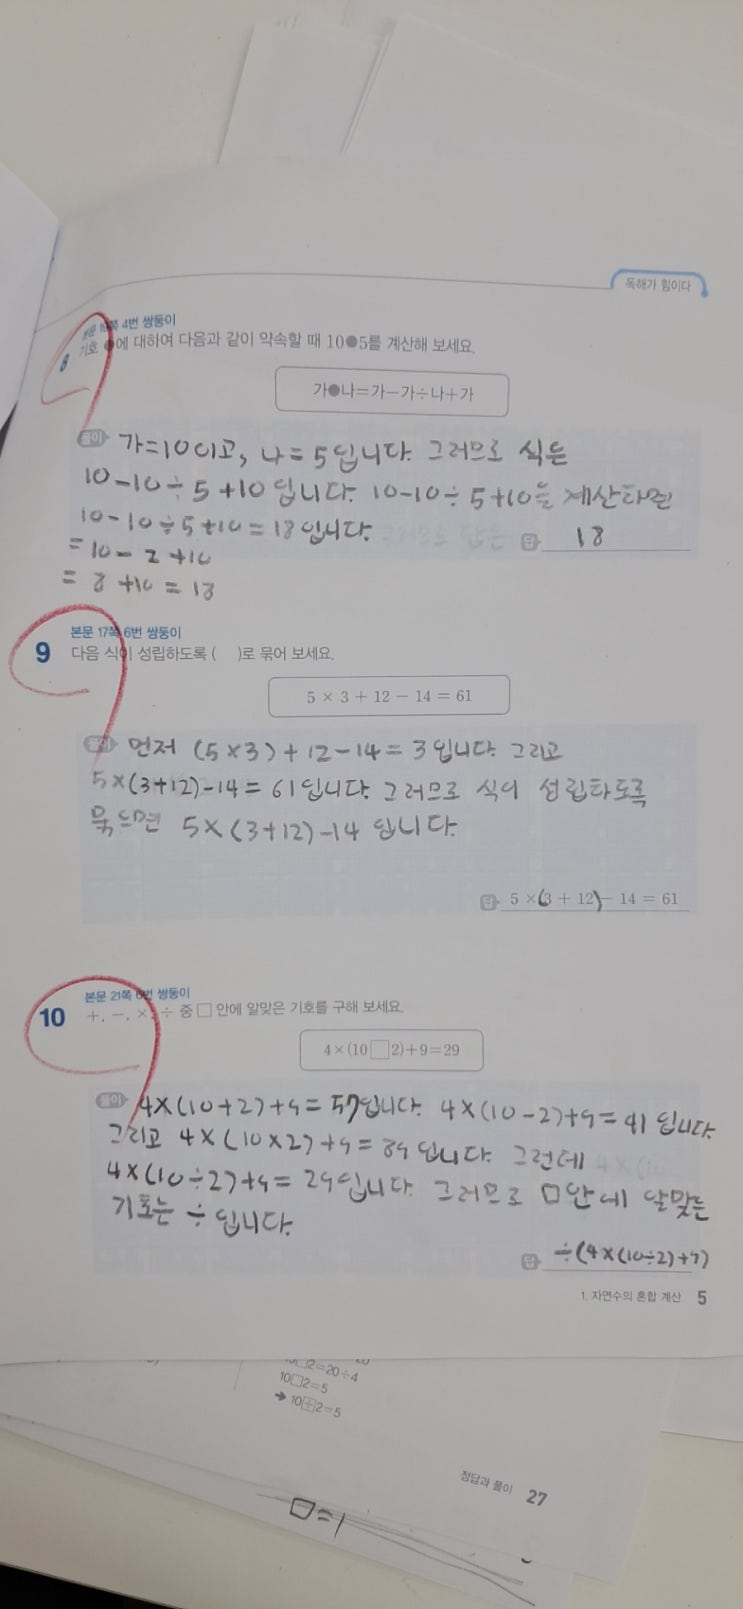 독해가 힘이다
본문 19쪽 4번 쌍둥이
8 기호 ●에 대하여 다음과 같이 약속할 때 10●5를 계산해 보세요.
가●나=가-가÷나+가
풀이 가=10이고, 나=5입니다. 그러므로 식은
10-10÷5+10입니다. 10-10÷5+10을 계산하면
10-10÷5+10=18입니다.
답 18
=10-2+10
=8+10=18
본문 17쪽 6번 쌍둥이
9 다음 식이 성립하도록 ( )로 묶어 보세요.
5 × 3 + 12 - 14 = 61
풀이 먼저 (5×3)+12-14=3입니다. 그리고
5×(3+12)-14=61입니다. 그러므로 식이 성립하도록
묶으면 5×(3+12)-14 입니다.
답 5 ×(3 + 12)- 14 = 61
본문 21쪽 6번 쌍둥이
10 +, -, ×, ÷ 중 □ 안에 알맞은 기호를 구해 보세요.
4×(10□2)+9=29
풀이 4×(10+2)+9=57입니다. 4×(10-2)+9=41입니다.
그리고 4×(10×2)+9=89입니다. 그런데
4×(10÷2)+9=29입니다. 그러므로 □안에 알맞는
기호는 ÷입니다.
답 ÷(4×(10÷2)+9)
1. 자연수의 혼합 계산 5
10□2=20÷4
10□2=5
➔ 10÷2=5
정답과 풀이 27
□=1